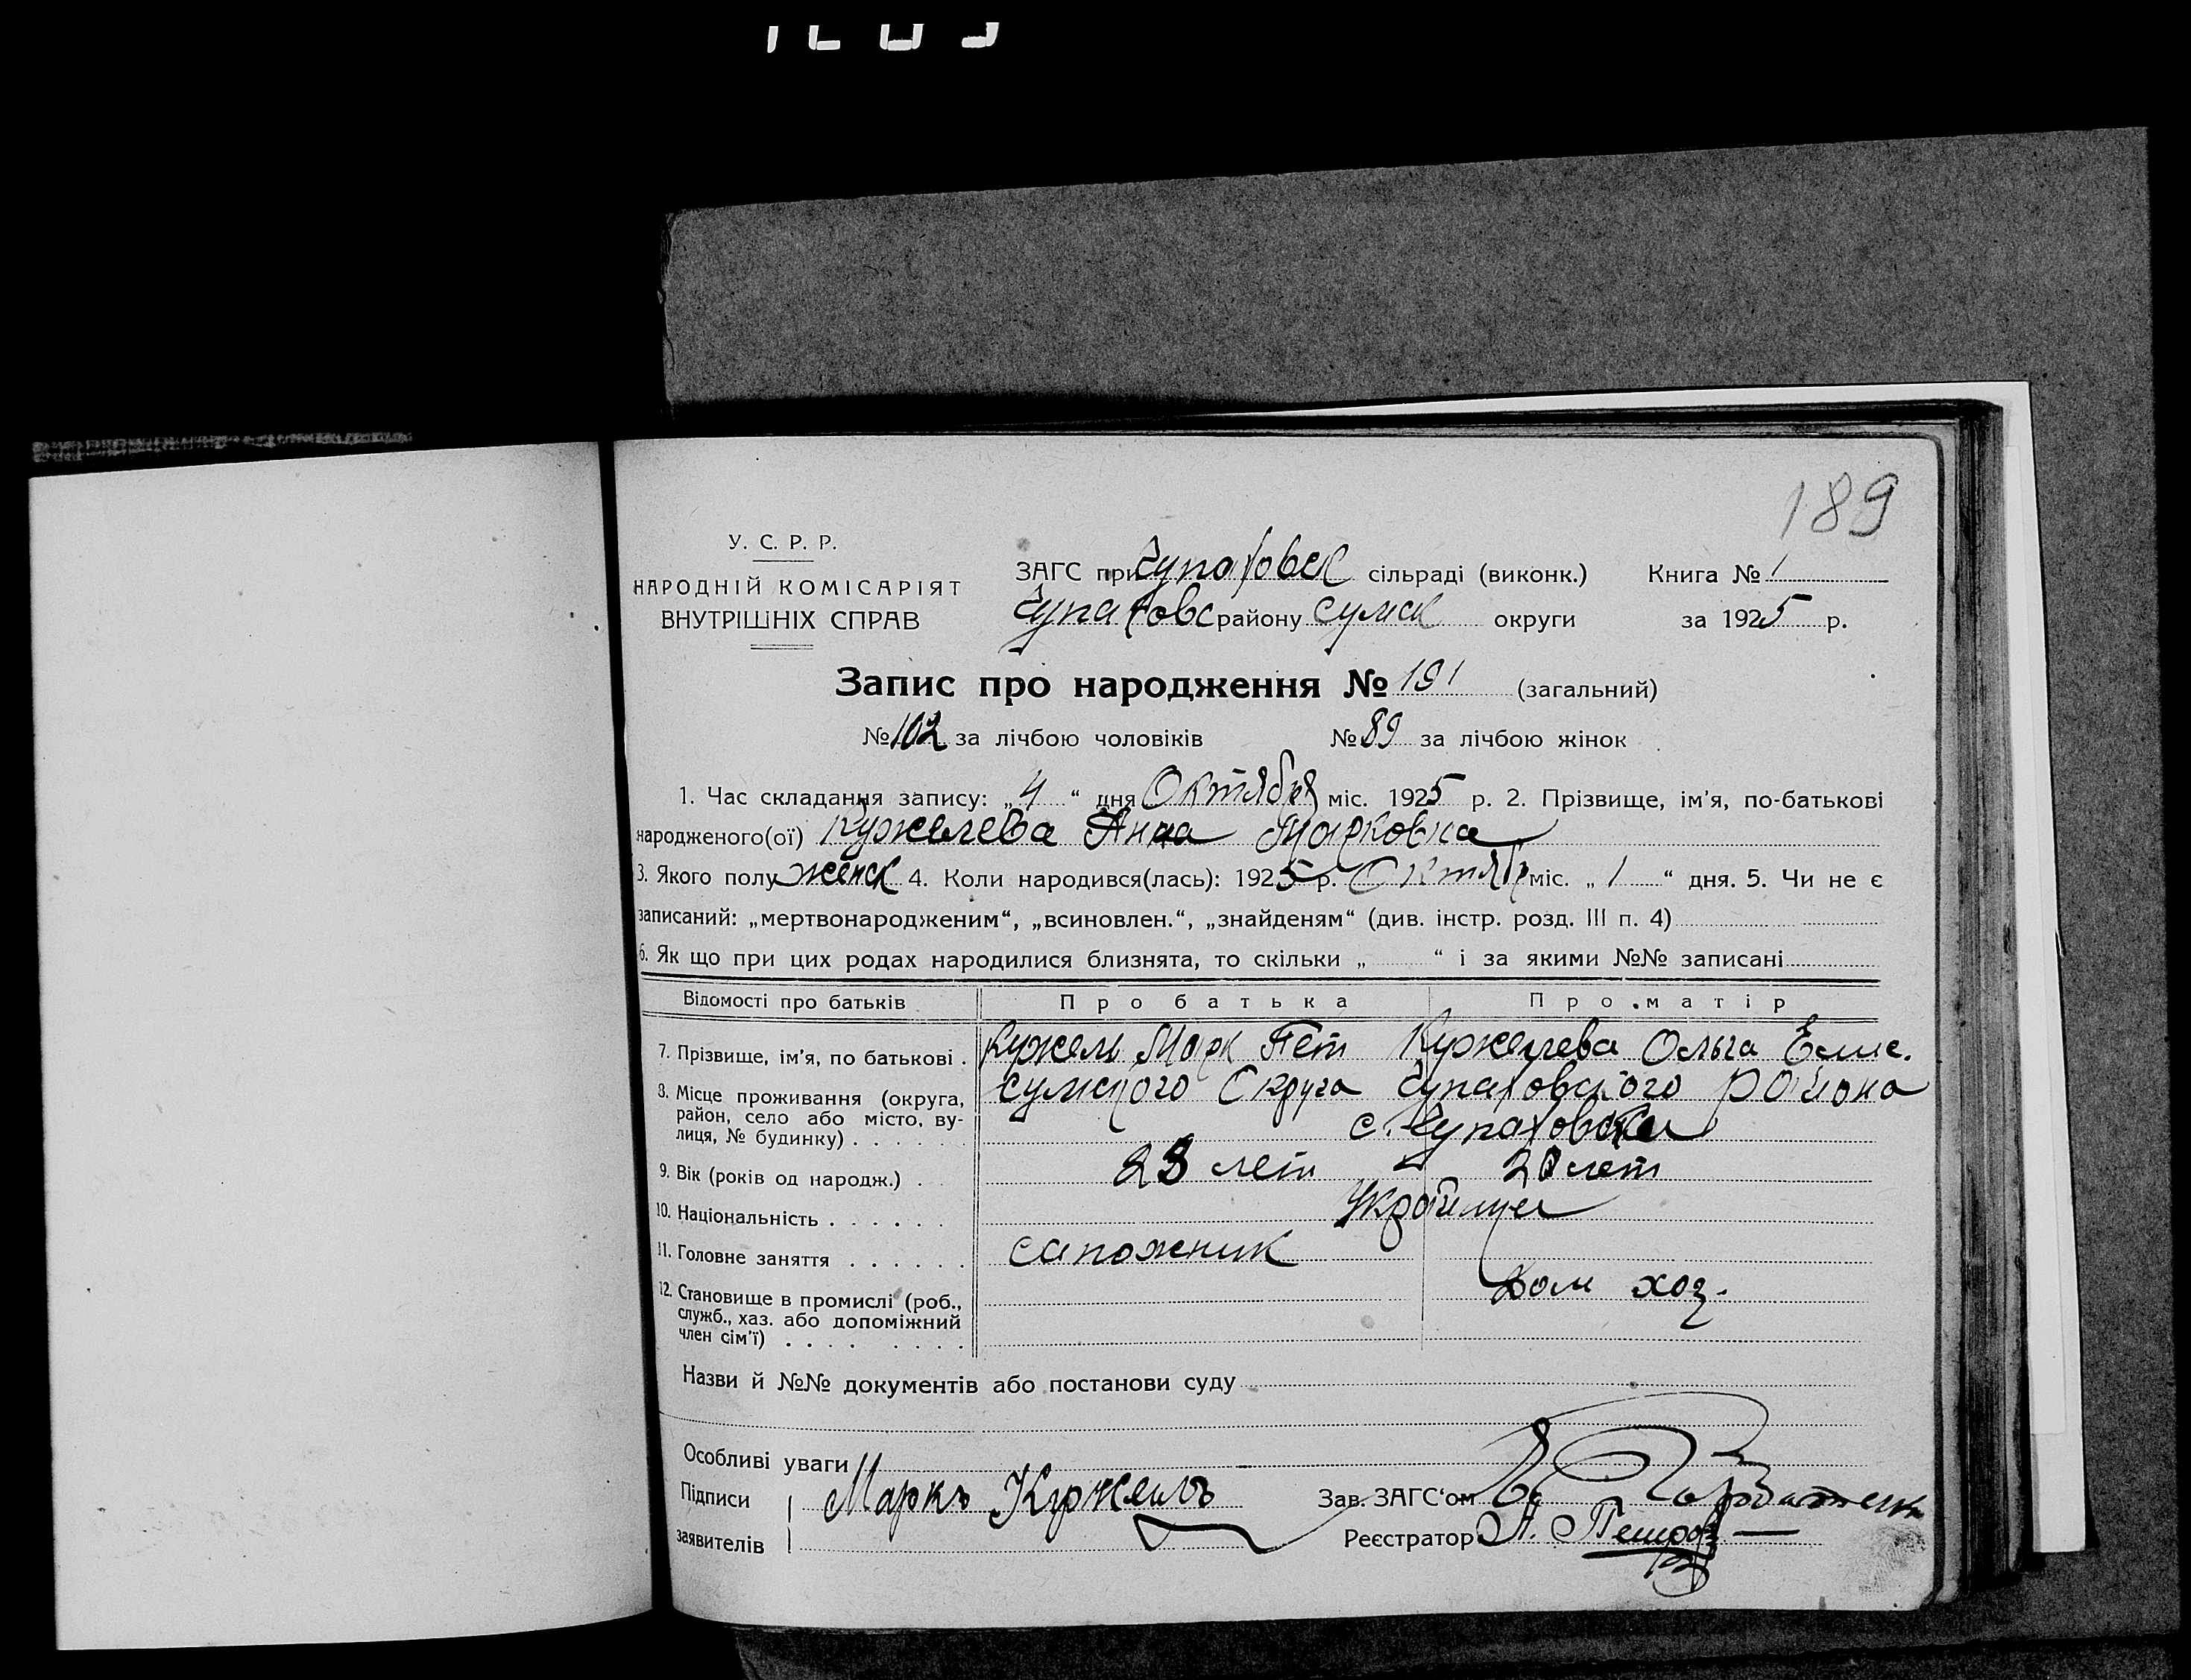 189
У. С. Р. Р.
НАРОДНІЙ КОМІСАРІЯТ
ВНУТРІШНІХ СПРАВ
ЗАГС при Чупаховск сільраді (виконк.) Книга № 1
Чупаховс району Сумск округи за 1925 р.
Запис про народження № 191 (загальний)
№ 102 за лічбою чоловіків № 89 за лічбою жінок
1. Час складання запису: „4“ дня Октября міс. 1925 р. 2. Прізвище, ім’я, по-батькові
народженого(ої) Кужелева Анна Марковна
3. Якого полу женск 4. Коли народився(лась): 1925 р. Октябр міс. „1“ дня. 5. Чи не є
записаний: „мертвонародженим“, „всиновлен.“, „знайденям“ (див. інстр. розд. III п. 4)
6. Як що при цих родах народилися близнята, то скільки „ “ і за якими №№ записані
Відомості про батьків Про батька Про матір
7. Прізвище, ім’я, по батькові . Кужель Марк Пет Кужелева Ольга Емис.
8. Місце проживання (округа, Сумского Округа Чупаховского Района
район, село або місто, ву-
лиця, № будинку) . . . . . . с. Чупаховка
9. Вік (років од народж.) . 23 лет 20 лет
10. Національність . . . . . . Украинцы
11. Головне заняття . . . . . . сапожник
12. Становище в промислі (роб., Дом хоз.
служб., хаз. або допоміжний
член сім’ї) . . . . . . . .
Назви й №№ документів або постанови суду
Особливі уваги
Підписи Маркъ Кужель Зав. ЗАГС‘ом
заявителів Реєстратор А. Петров